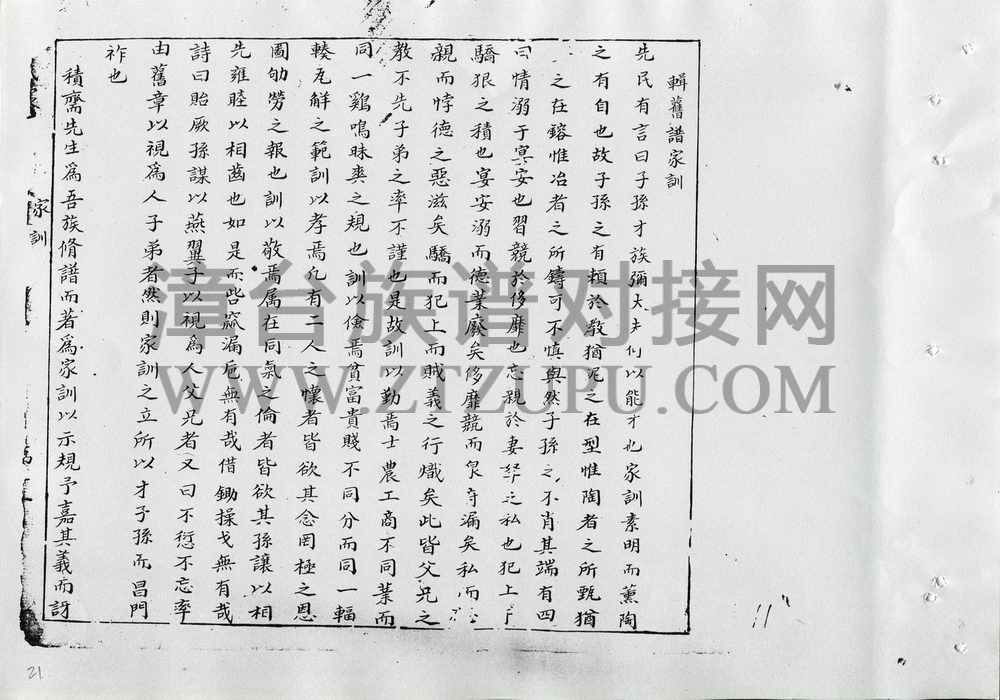 輯舊譜家訓
先民有言曰子孫才族彌大夫何以能才也家訓素明而薰陶
之有自也故子孫之有賴於教猶泥之在型惟陶者之所甄猶
之在鎔惟冶者之所鑄可不慎與然子孫之不肖其端有四
曰情溺于宴安也習競於侈靡也忘親於妻孥之私也犯上于
驕狠之積也宴安溺而德業廢矣侈靡競而漏矣私而
親而悖德之惡滋矣驕而犯上而賊義之行熾矣此皆父兄之
教不先子弟之率不謹也是故訓以勤焉士農工商不同業而
同一鷄鳴昧爽之規也訓以儉焉貧富貴賤不同分而同一輻
輳瓦觧之範訓以孝焉凢有二人之懷者皆欲其念罔極之恩
圖劬勞之報也訓以敬焉属在同氣之倫者皆欲其孫讓以相
先雍睦以相齒也如是而呰窳漏巵無有哉借鋤操戈無有哉
詩曰貽厥孫謀以燕翼子以視爲人父兄者又曰不愆不忘率
由舊章以視爲人子弟者然則家訓之立所以才子孫而昌門
祚也
積齋先生爲吾族脩譜而著爲家訓以示規予嘉其義而訝
家訓
21
漳台族谱对接网
WWW.ZTZUPU.COM